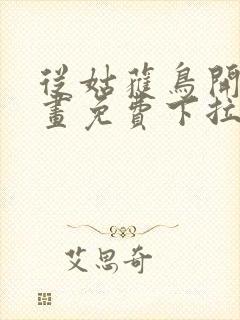 從姑蘿鳥開
畫免費下拉
艾思奇